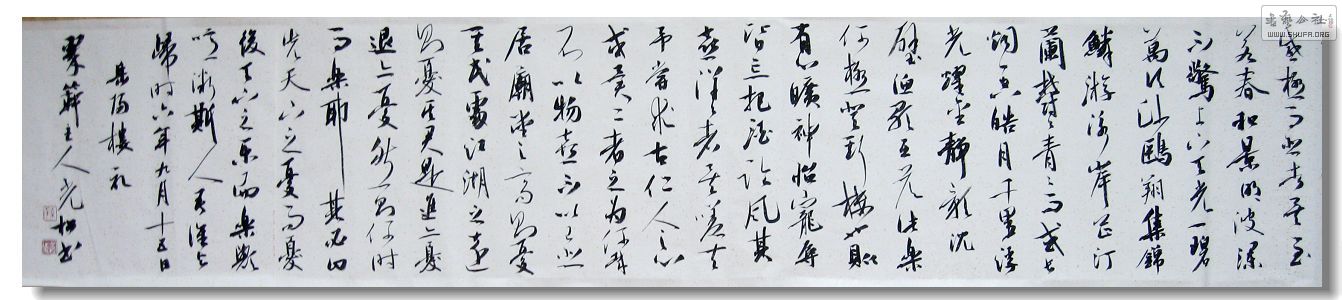 感極而悲者矣至
若春和景明波瀾
不驚上下天光一碧
萬頃沙鷗翔集錦
鱗游泳岸芷汀
蘭郁々青々而或長
煙一空皓月千里浮
光躍金靜影沉
璧漁歌互答此樂
何極登斯樓也則
有心曠神怡寵辱
皆忘把酒臨風其
喜洋々者矣嗟夫
予嘗求古仁人之心
或異二者之為何哉
不以物喜不以己悲
居廟堂之高則憂
其民處江湖之遠
則憂其君是進亦憂
退亦憂然則何時
而樂耶其必曰
先天下之憂而憂
後天下之樂而樂歟
噫微斯人吾誰與
歸時六年九月十五日
岳陽樓記
主人光書
書藝公社
WWW.SHUFA.ORG